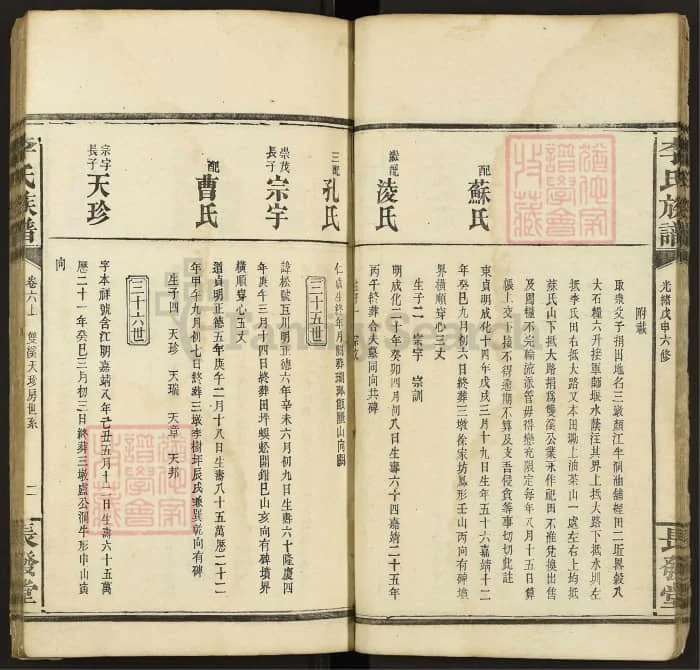 李氏族譜
光緒戊申六修
長發堂
附載
大石糧六升接軍師堰水蔭注其界上抵大路下抵水圳左
抵李氏田右抵大路又本田磡上油茶山一處左右上均抵
蘇氏山下抵大路捐爲雙溪公業永作祀田不准兌換出售
及圖糧不完輪流派管毋得變充限定每年八月十五日算
賬上交下接不得逾期不算及支吾侵食等事切切此註
配
蘇氏
東貞明成化十四年戊戌三月十九日生年五十六嘉靖十二
年癸巳九月初六日終葬三墩徐家坊鳳形壬山丙向有碑墳
界橫順穿心三丈
生子二 宗宇 宗訓
繼配
淩氏
明成化二十年癸卯四月初八日生壽六十四嘉靖二十五年
丙午終葬合夫墓同向共碑
三配
孔氏
三十五世
崇茂
長子
宗宇
諱松號互川明正德六年辛未六月初九日生壽六十隆慶四
年庚午三月十四日終葬田坪蜈蚣開鉗巳山亥向有碑墳界
橫順穿心五丈
配
曹氏
遒貞明正德五年庚午二月十八日生壽八十五萬歷二十二
年甲午九月初七日終葬三墩李樹坪辰戌兼巽乾向有碑
生子四 天珍 天瑞 天章 天邦
三十六世
宗宇
長子
天珍
字本祥號含江明嘉靖八年七丑五月十二日生壽六十五萬
歷二十一年癸巳三月初三日終葬三墩盧公澗牛形申山寅
向
李氏族譜
卷六上 雙溪天珍房世系 一
長發堂
FamilySearch